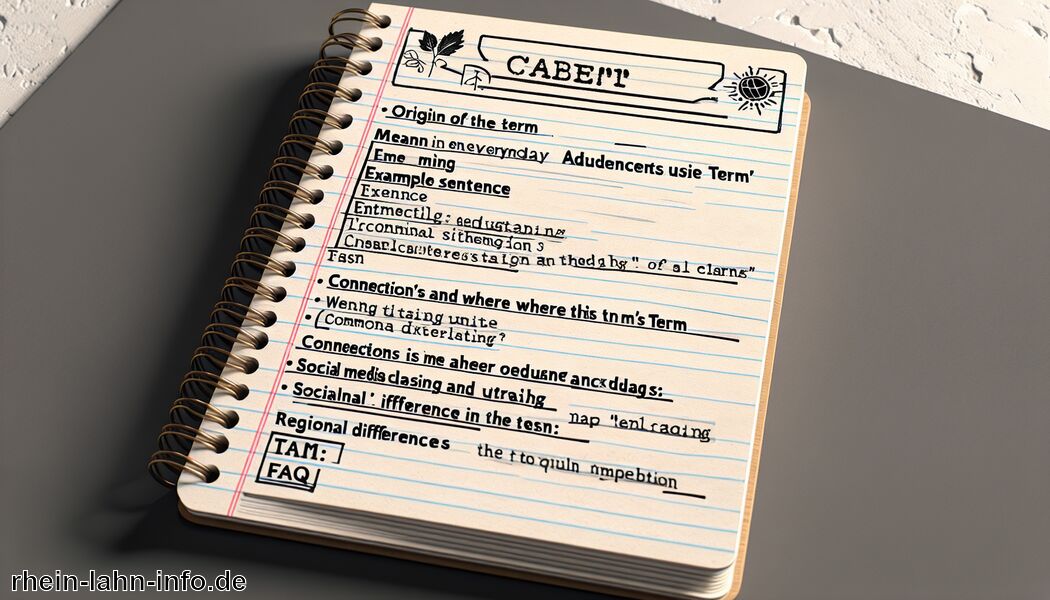 CABEṬṬ
• Origiin of the term
Meann in eneverynday Adudencerts usie Term'
Eme ming
Example sentence
Fxennce
Entmectilg: sedustaning
Connection's and where where this tnm's Term
• Wenng titaing unite
• (Commona dxterlating?
Connections is me aheer oedusne ancxddags:
• Social media clasing and utraihg
• Socialnal : iffference in the tesn: nap "tenl raging
Regional diffferences the t to quiln nmpebtion
TAM:
FAQ
rhein-lahn-info.de